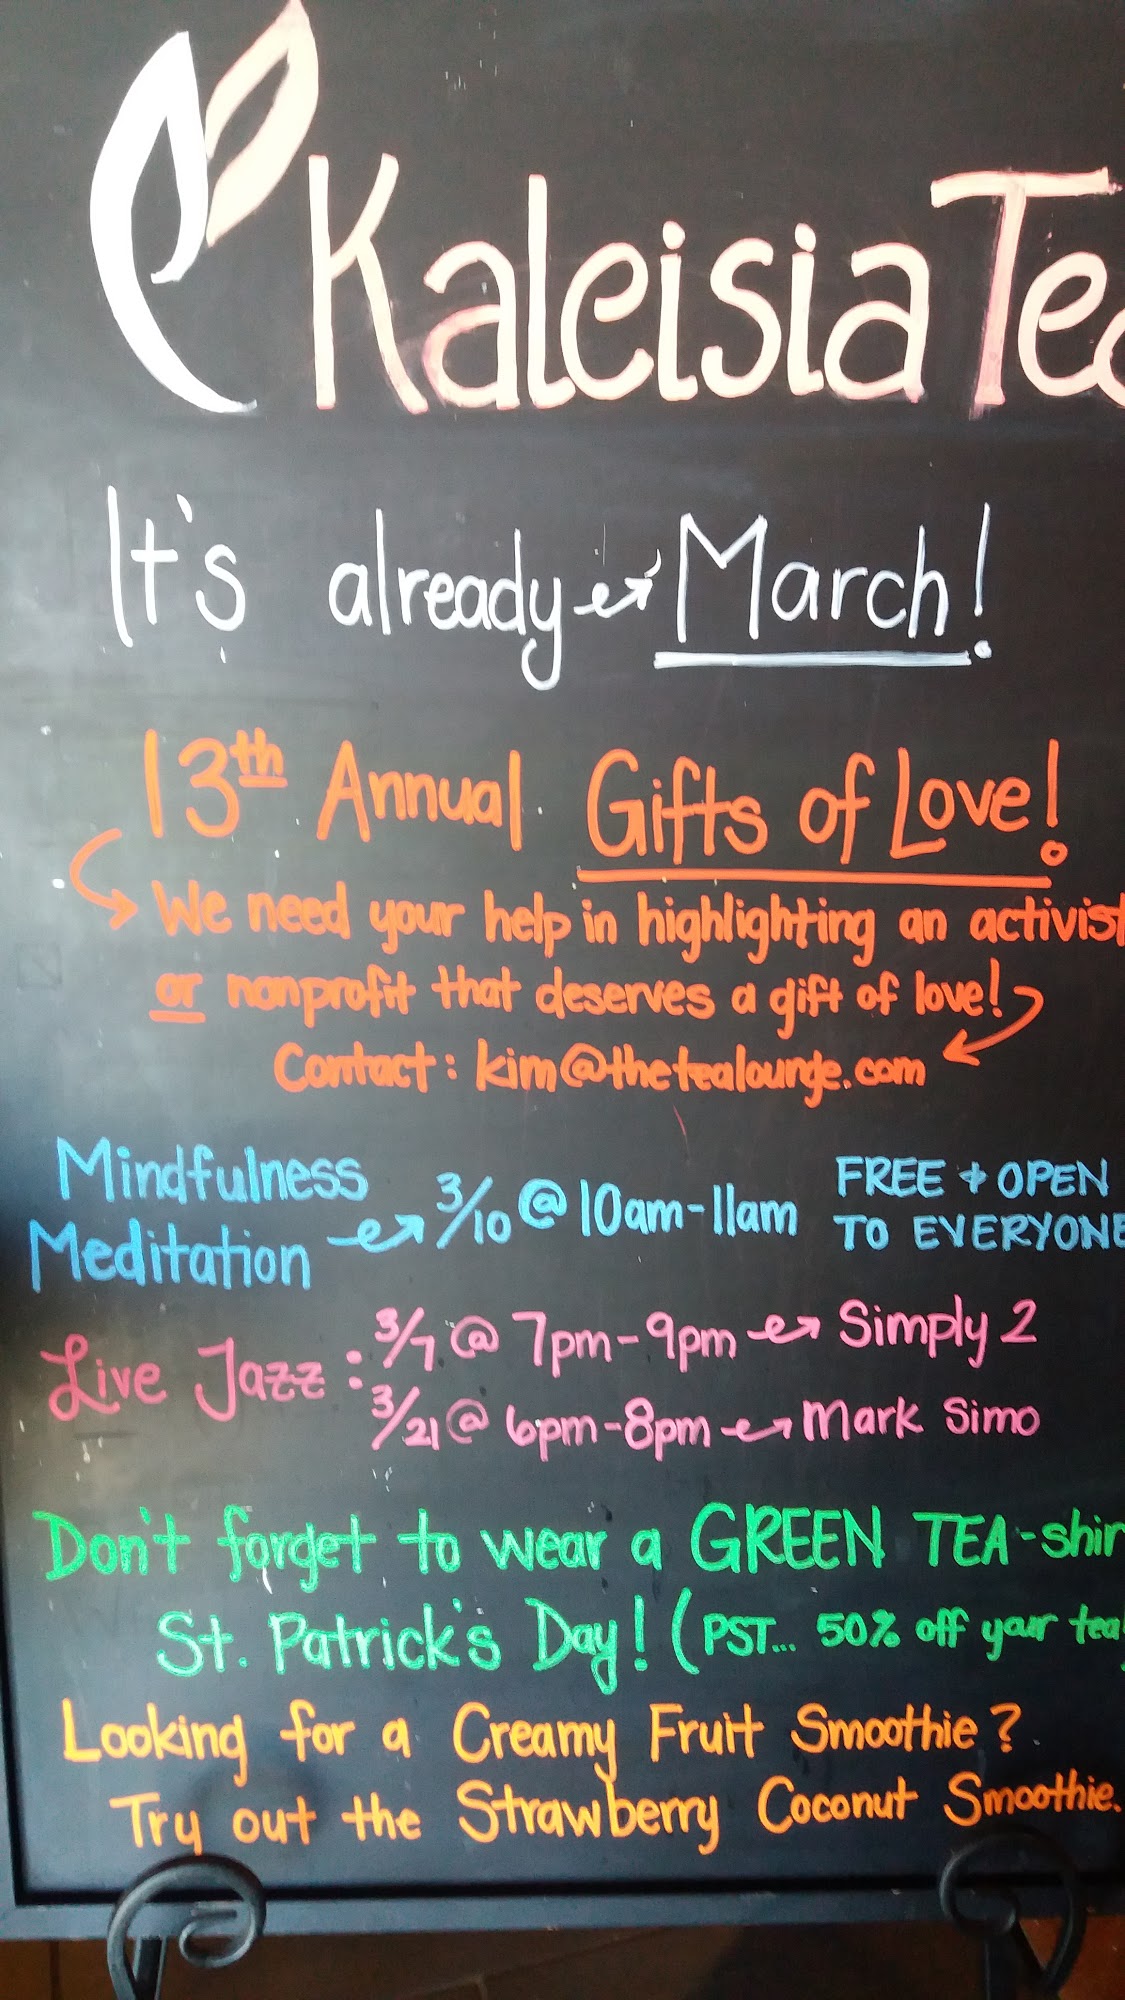 Kaleisia Tea
It's already March!
13th Annual Gifts of Love!
We need your help in highlighting an activist
or nonprofit that deserves a gift of love!
Contact: kim@thetealounge.com
Mindfulness
Meditation 3/10 @ 10am-11am
FREE + OPEN
TO EVERYONE
Live Jazz: 3/7 @ 7pm-9pm Simply 2
3/21 @ 6pm-8pm Mark Simo
Don't forget to wear a GREEN TEA-shir
St. Patrick's Day! (PST... 50% off your tea
Looking for a Creamy Fruit Smoothie?
Try out the Strawberry Coconut Smoothie.